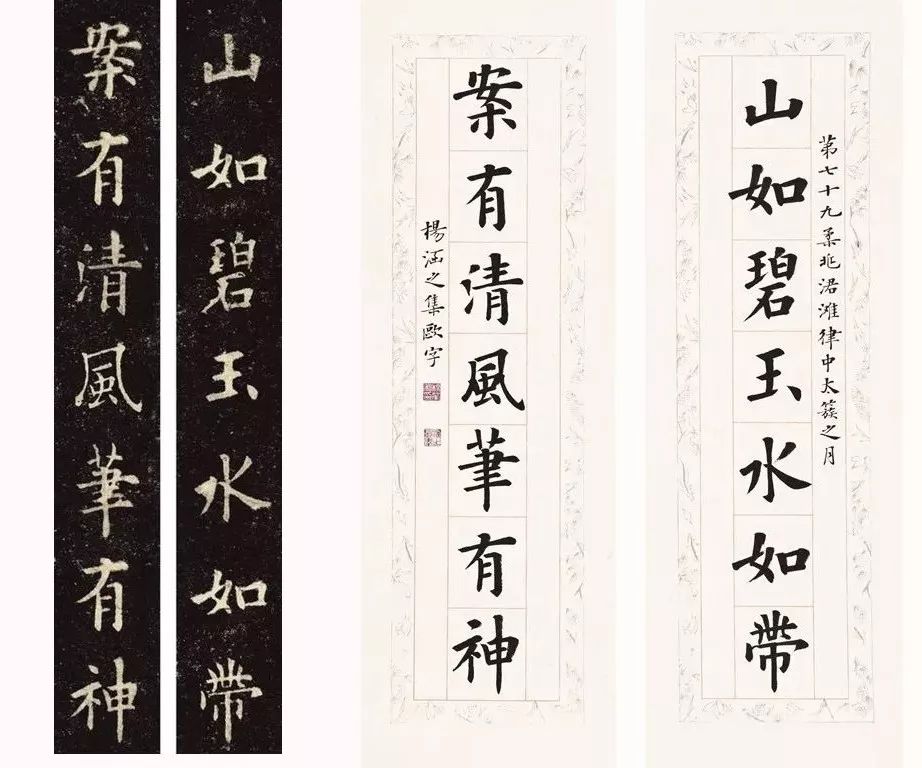 第七十九柔兆涒灘律中太簇之月
山如碧玉水如帶
案有清風筆有神
楊涵之集歐字
山如碧玉水如帶
案有清風筆有神